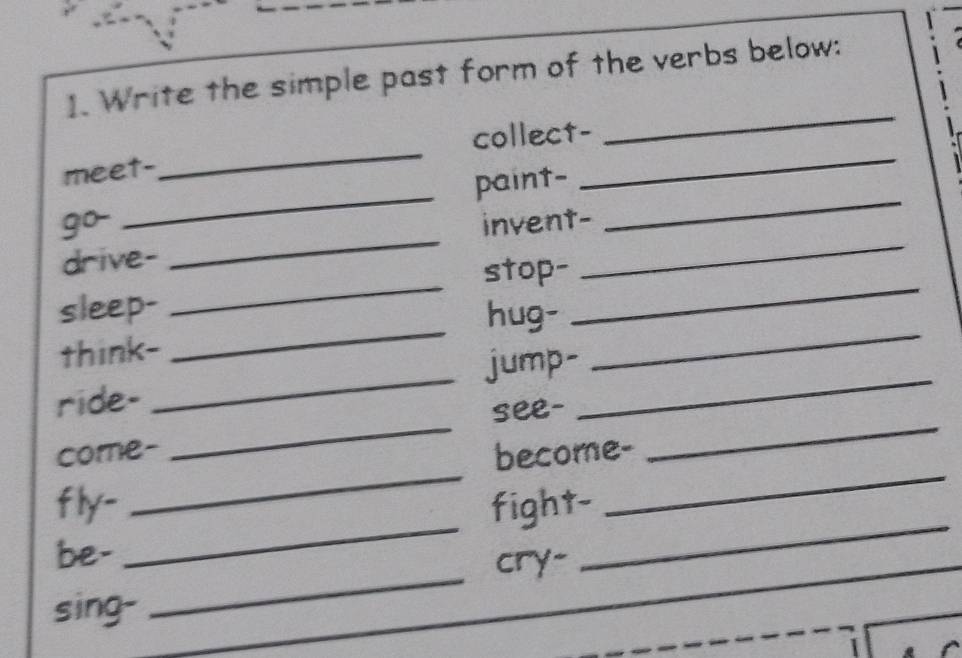 1. Write the simple past form of the verbs below:
meet- ____________
go- ____________
drive- ____________
sleep- ____________
think- ____________
ride- ____________
come- ____________
fly- ____________
be- ____________
sing- ____________
collect- ____________
paint- ____________
invent- ____________
stop- ____________
hug- ____________
jump- ____________
see- ____________
become- ____________
fight- ____________
cry- ____________